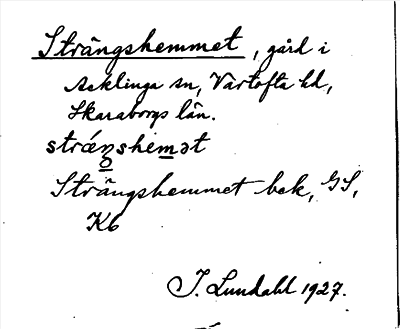 Strängshemmet, gård i
Acklinga sn, Vartofta hd,
Skaraborgs län.
strǽŋshemət
Strängshemmet bek, GS,
Kb
J. Lundahl 1927.